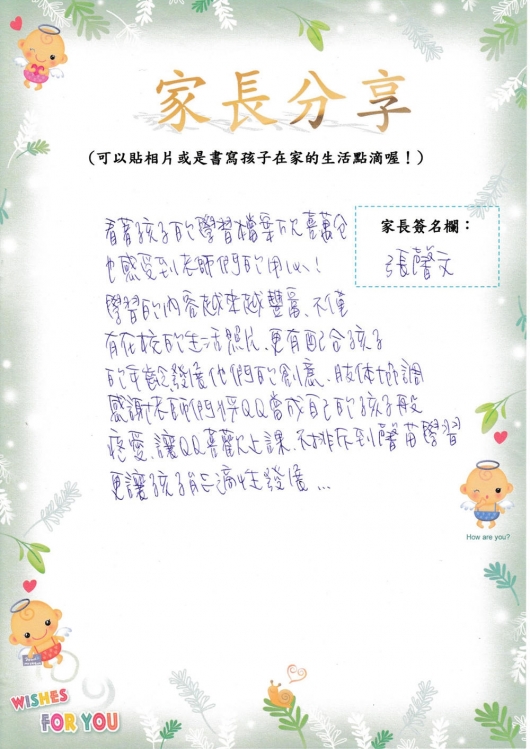 家長分享
(可以貼相片或是書寫孩子在家的生活點滴喔！)
家長簽名欄：
張馨文
看著孩子的學習檔案欣喜萬分
也感受到老師們的用心！
學習的內容越來越豐富、不僅
有在校的生活照片、更有配合孩子
的年齡發展他們的創意、肢體協調
感謝老師們將QQ當成自己的孩子般
疼愛、讓QQ喜歡上課、不排斥到馨苗學習
更讓孩子能適性發展…
How are you?
WISHES
FOR YOU